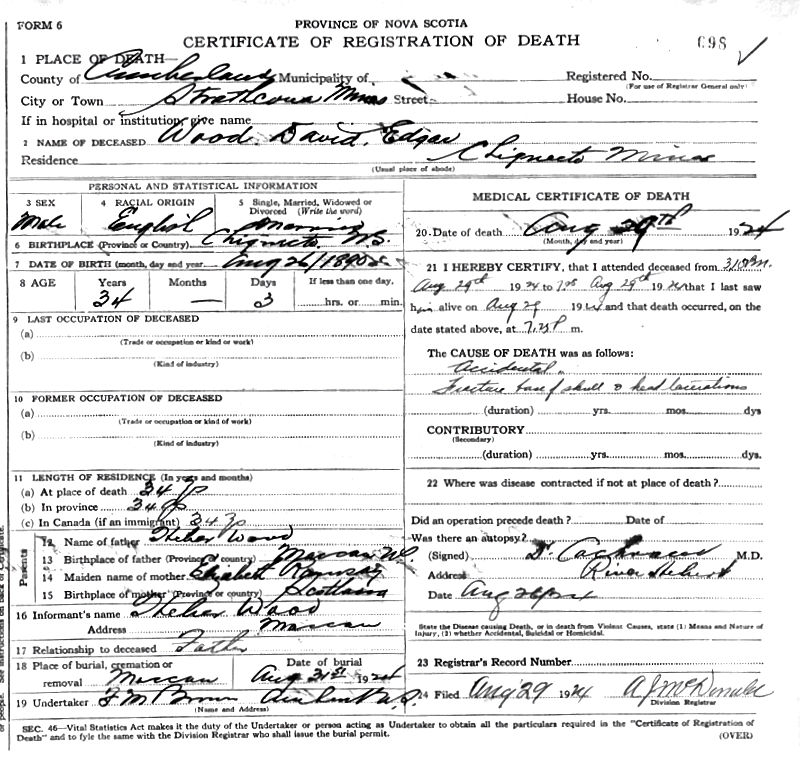 FORM 6
PROVINCE OF NOVA SCOTIA
CERTIFICATE OF REGISTRATION OF DEATH
698
1 PLACE OF DEATH—
County of Cumberland Municipality of
Registered No.
(For use of Registrar General only)
City or Town Strathcona Mines Street
House No.
If in hospital or institution, give name
2 NAME OF DECEASED Wood, David, Edgar
Residence Chignecto Mines
(Usual place of abode)
PERSONAL AND STATISTICAL INFORMATION
3 SEX
Male
4 RACIAL ORIGIN
English
5 Single, Married, Widowed or Divorced (Write the word)
Married
6 BIRTHPLACE (Province or Country) Chignecto, N.S.
7 DATE OF BIRTH (month, day and year) Aug 26/1890
8 AGE
Years
34
Months
—
Days
3
If less than one day,
hrs. or min.
9 LAST OCCUPATION OF DECEASED
(a)
(Trade or occupation or kind or work)
(b)
(Kind of industry)
10 FORMER OCCUPATION OF DECEASED
(a)
(Trade or occupation or kind of work)
(b)
(Kind of industry)
11 LENGTH OF RESIDENCE (In years and months)
(a) At place of death 34 y
(b) In province 34 y
(c) In Canada (if an immigrant) 34 y
Parents
12 Name of father Wood
13 Birthplace of father (Province or country) Maccan N.S.
14 Maiden name of mother Elizabeth Ramsay
15 Birthplace of mother (Province or country) Scotland
16 Informant's name Wood
Address Maccan
17 Relationship to deceased Father
18 Place of burial, cremation or removal Maccan
Date of burial
Aug 31st 1924
19 Undertaker F M Brown Amherst N.S.
(Name and Address)
MEDICAL CERTIFICATE OF DEATH
20 Date of death Aug 29th 1924
(Month, day and year)
21 I HEREBY CERTIFY, that I attended deceased from 3,10 P.M.
Aug 29th 1924 to Aug 29th 1924 that I last saw
him alive on Aug 29 1924 and that death occurred, on the
date stated above, at m.
The CAUSE OF DEATH was as follows:
Accidental
Fracture base of skull & head lacerations
(duration) yrs. mos. dys
CONTRIBUTORY
(Secondary)
(duration) yrs. mos. dys.
22 Where was disease contracted if not at place of death?
Did an operation precede death? Date of
Was there an autopsy?
(Signed) Dr Cochrane M.D.
Address River Hebert
Date Aug
State the Disease causing Death, or in death from Violent Causes, state (1) Means and Nature of
Injury, (2) whether Accidental, Suicidal or Homicidal.
23 Registrar's Record Number
24 Filed Aug 29 1924 A J McDonald
Division Registrar
SEC. 46—Vital Statistics Act makes it the duty of the Undertaker or person acting as Undertaker to obtain all the particulars required in the "Certificate of Registration of
Death" and to fyle the same with the Division Registrar who shall issue the burial permit.
(OVER)